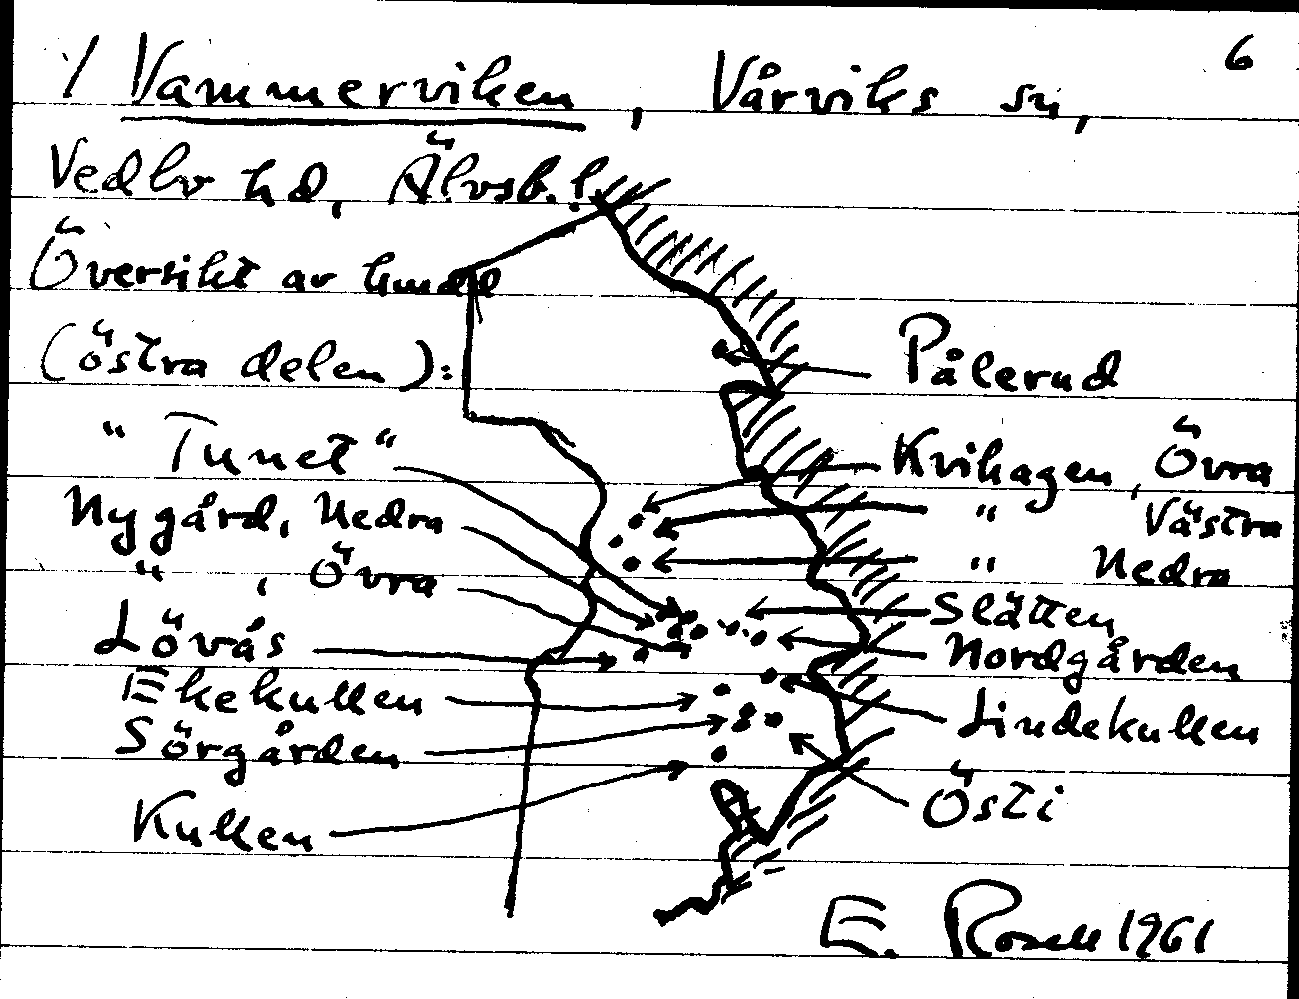 6
/ Vammerviken, Vårviks sn,
Vedbo hd, Älvsb. l.
Översikt av hundd
(östra delen):
Pålerud
"Tunet"
Kvihagen, Övra
Nygård, Nedra
" Västra
" , Övra
" Nedra
Slätten
Lövås
Nordgården
Ekekullen
Lindekullen
Sörgården
Östi
Kullen
E. Rosell 1961